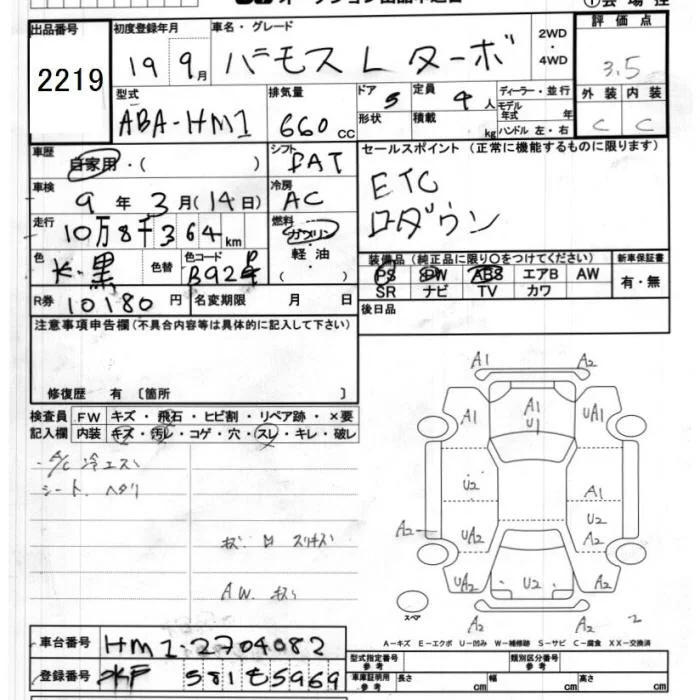 出品番号 初度登録年月 車名・グレード 2WD・4WD 評価点
2219 19 9月 バモス L ターボ 3.5
型式 排気量 ドア 5 定員 4人 ディーラー・並行 外装 内装
ABA-HM1 660cc 形状 積載 kg モデル年式 年 ハンドル 左・右 C C
車歴 自家用・( ) シフト FAT セールスポイント(正常に機能するものに限ります)
車検 9年3月(14日) 冷房 AC ETC
走行 10万8千364km 燃料 ガソリン・軽油・( ) ロダウン
色 黒 色替 色コード B92P 装備品(純正品に限り○をつけてください) 新車保証書
PS PW ABS エアB AW 有・無
SR ナビ TV カワ
R券 10180円 名変期限 月 日 後日品
注意事項申告欄(不具合内容等は具体的に記入して下さい)
修復歴 有 〔箇所 〕
検査員 FW キズ・飛石・ヒビ割・リペア跡・×要
記入欄 内装 キズ・汚レ・コゲ・穴・スレ・キレ・破レ
A/C 冷エス
シート ヘタリ
キズ
A.W. キズ
A1 A2
A1 A1 U1 UA1
U2 A1
U2
A2 UA2 A2
UA2 U2 A2
A2 A2 2
スペア
A-キズ E-エクボ U-凹み W-補修跡 S-サビ C-腐食 XX-交換済
車台番号 HM1-2704082 型式指定番号 参考 類別区分番号 参考
登録番号 水戸 581 も 5969 車庫証明用 参考 長さ cm 幅 cm 高さ cm